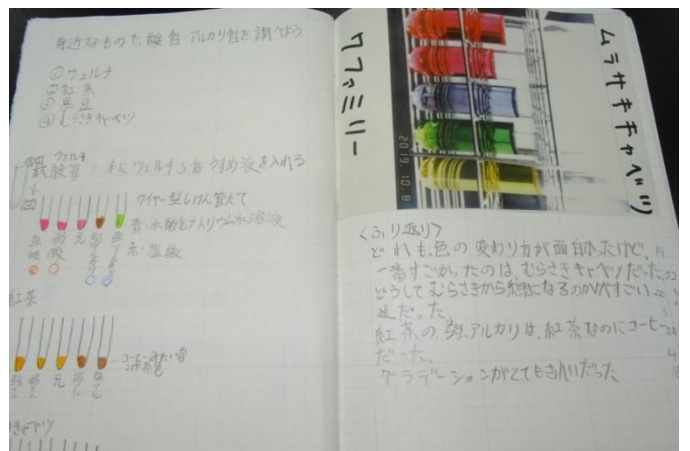 身近なもので、酸性・アルカリ性を調べよう
①ウェルチ
②紅茶
③黒豆
④むらさきキャベツ
ウェルチ
試験管に
うすめ液を入れる
ワイヤー型しけん管立て
青・水酸化ナトリウム水溶液
赤・塩酸
強酸
弱酸
元
紅茶
元
コーヒーみたいな
こげ茶色
ムラサキキャベツ
ファミリー
2019.10.8
<ふり返り>
どれも、色の変わり方が面白かったけど、
一番すごかったのは、むらさきキャベツだった。
どうしてむらさきから緑になるのかがすごい
だった。
紅茶の、強アルカリは、紅茶なのにコーヒー
だった。
グラデーションがとてもきれいだった